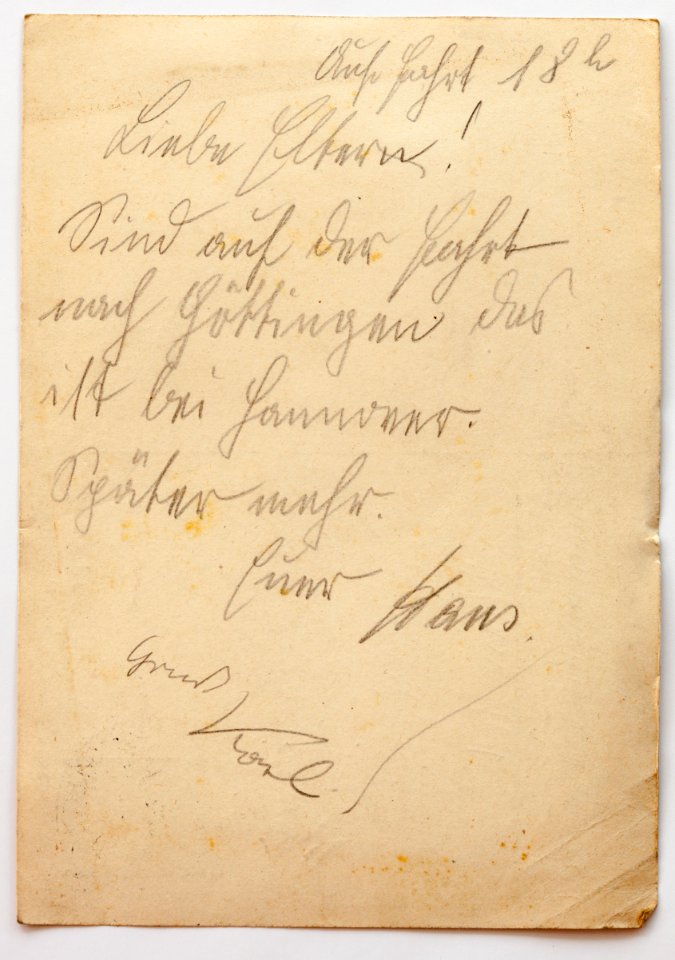 Auf Fahrt 18 h
Liebe Eltern!
Sind auf der Fahrt
nach Göttingen das
ist bei Hannover.
Später mehr.
Euer Hans.
Gruß
Karl.